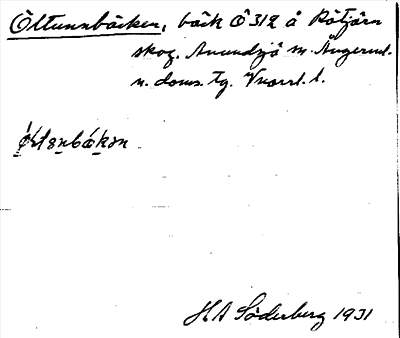 Öltunnbäcken, bäck Ö 312 å Rötjärn
skog. Anundsjö sn. Ångerml.
n. doms. tg. Vnorrl. l.
HA Söderberg 1931